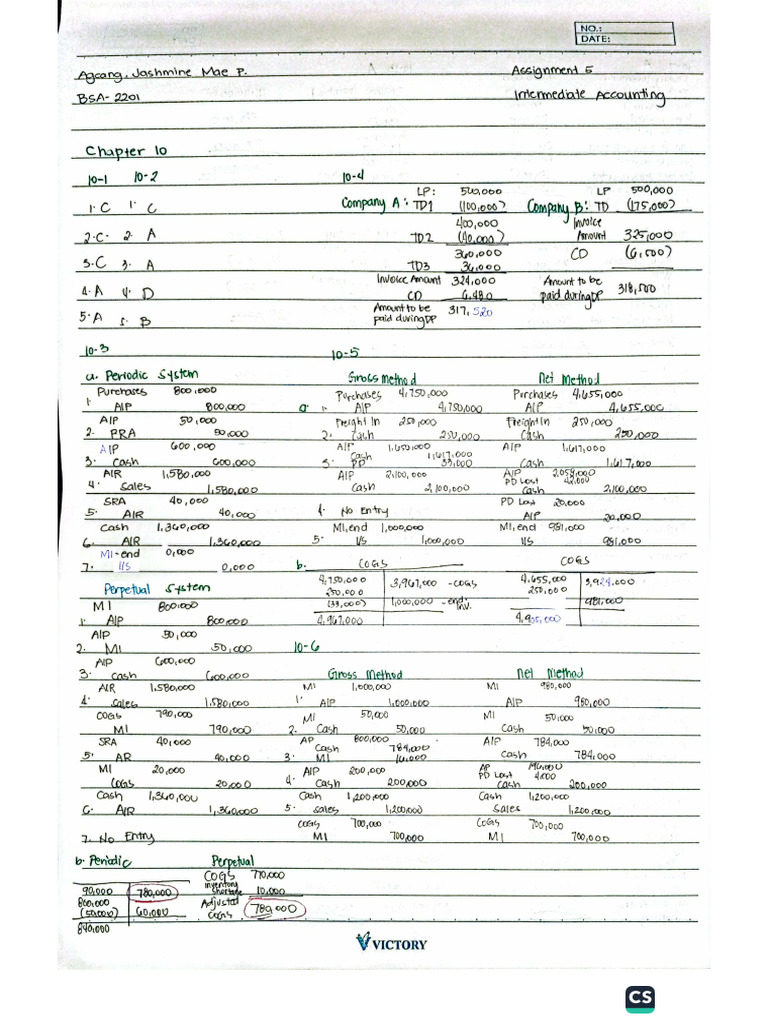 NO.:
DATE:
Agcang, Jashmine Mae P. Assignment 5
BSA-2201 Intermediate Accounting
Chapter 10
10-1 10-2
1. C 1. C
2. C. 2. A
3. C 3. A
4. A 4. D
5. A 5. B
10-4
Company A: LP: 500,000
TD1 (100,000)
400,000
TD2 (40,000)
360,000
TD3 36,000
Invoice Amount 324,000
CD 6,480
Amount to be paid during DP 317,520
Company B: LP 500,000
TD (175,000)
Invoice Amount 325,000
CD (6,500)
Amount to be paid during DP 318,500
10-3
a. Periodic System
Purchases 800,000
1. A/P 800,000
A/P 50,000
2. PRA 50,000
A/P 600,000
3. Cash 600,000
A/R 1,580,000
4. Sales 1,580,000
SRA 40,000
5. A/R 40,000
Cash 1,360,000
6. A/R 1,360,000
MI-end 0,000
7. I/S 0,000
Perpetual System
MI 800,000
1. A/P 800,000
A/P 50,000
2. MI 50,000
A/P 600,000
3. Cash 600,000
A/R 1,580,000
4. Sales 1,580,000
COGS 790,000
MI 790,000
SRA 40,000
5. AR 40,000
MI 20,000
COGS 20,000
Cash 1,360,000
6. A/R 1,360,000
7. No Entry
b. Periodic
90,000 780,000
800,000
(50,000) 60,000
840,000
Perpetual
COGS 770,000
Inventory Shortage 10,000
Adjusted COGS 780,000
10-5
Gross Method
Purchases 4,750,000
a. 1. A/P 4,750,000
Freight In 250,000
2. Cash 250,000
A/P 1,650,000
Cash 1,617,000
3. PD 33,000
A/P 2,100,000
Cash 2,100,000
4. No Entry
MI, end 1,000,000
5. I/S 1,000,000
Net Method
Purchases 4,655,000
A/P 4,655,000
Freight In 250,000
Cash 250,000
A/P 1,617,000
Cash 1,617,000
A/P 2,058,000
PD Lost 42,000
Cash 2,100,000
PD Lost 20,000
A/P 20,000
MI, end 981,000
I/S 981,000
b. COGS
4,750,000 3,967,000 - COGS
250,000
(33,000) 1,000,000 - end. inv.
4,967,000
COGS
4,655,000 3,924,000
250,000
981,000
4,905,000
10-6
Gross Method
MI 1,000,000
1. A/P 1,000,000
MI 50,000
2. Cash 50,000
AP 800,000
Cash 784,000
3. MI 16,000
A/P 200,000
4. Cash 200,000
Cash 1,200,000
5. Sales 1,200,000
COGS 700,000
MI 700,000
Net Method
MI 980,000
A/P 980,000
MI 50,000
Cash 50,000
A/P 784,000
Cash 784,000
AP 196,000
PD Lost 4,000
Cash 200,000
Cash 1,200,000
Sales 1,200,000
COGS 700,000
MI 700,000
VICTORY
CS